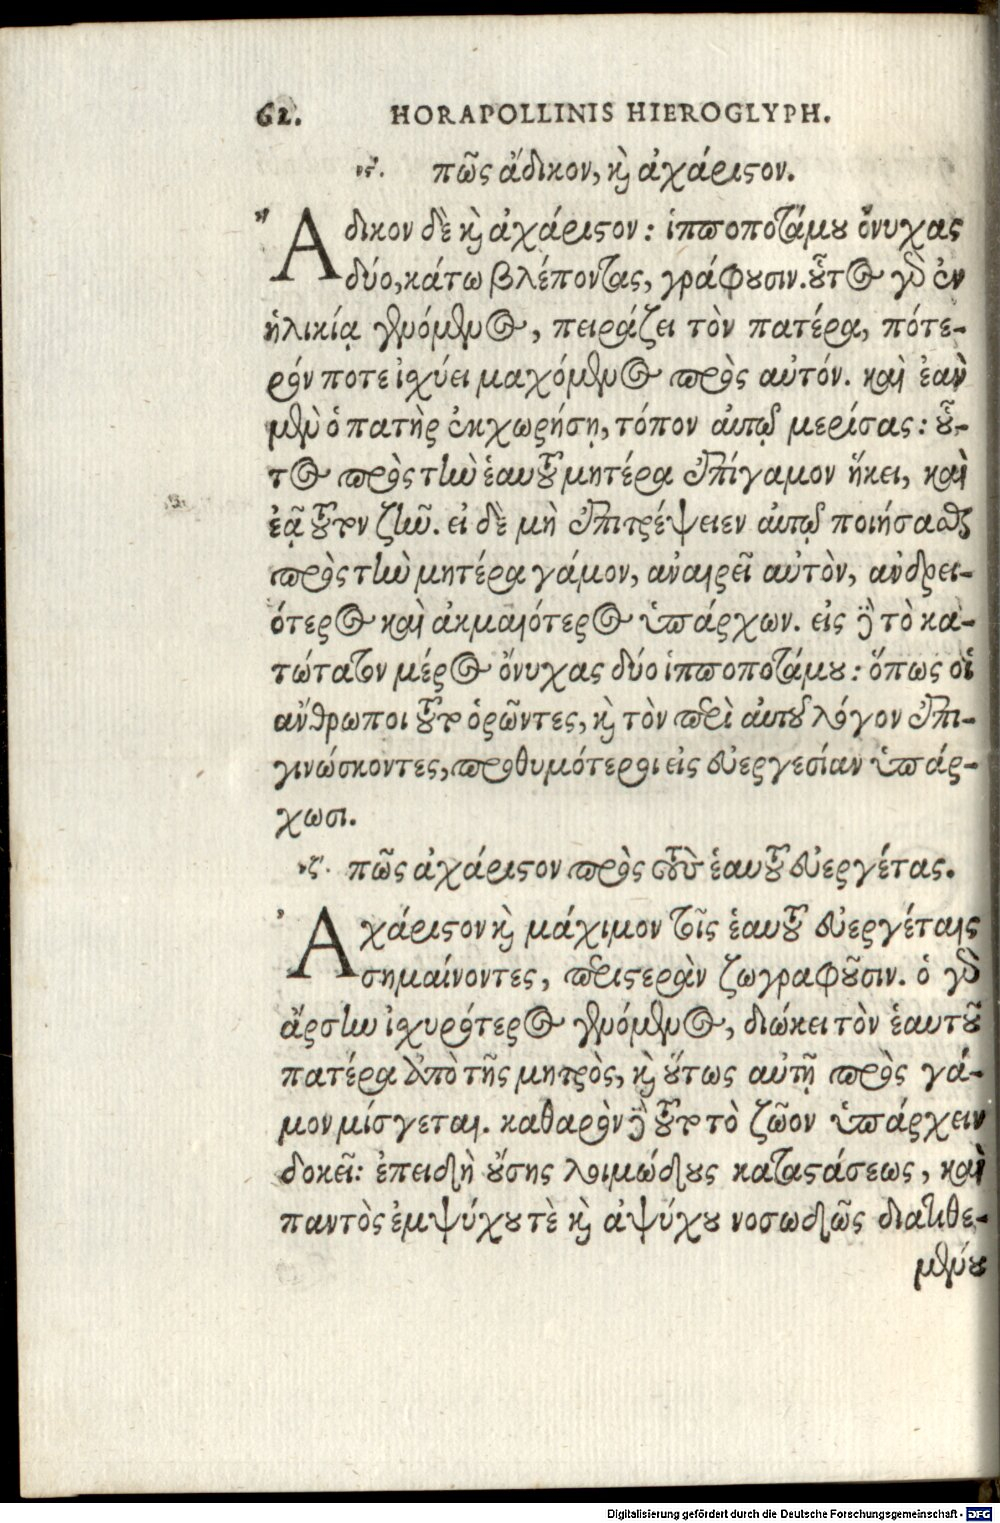 62. HORAPOLLINIS HIEROGLYPH.
νϛ. πῶς ἄδικον, ϗ ἀχάριϛον.
Ἄδικον δὲ ϗ ἀχάριϛον: ἱπποποτάμȣ ὄνυχας
δύο, κάτω βλέποντας, γράφȣσιν. ȣ̃τος γὰρ ἐν
ἡλικίᾳ γενόμενος, πειράζει τὸν πατέρα, πότε-
ρόν ποτε ἰσχύει μαχόμενος πρὸς αὐτόν. καὶ ἐὰν
μὲν ὁ πατὴρ ἐκχωρήσῃ, τόπον αὐτῷ μερίσας: ȣ̃-
τος πρὸς τὴν ἑαυτȣ̃ μητέρα ἐπὶ γάμον ἥκει, καὶ
ἐᾷ τȣ̃τον ζῆν. εἰ δὲ μὴ ἐπιτρέψειεν αὐτῷ ποιήσασθαι
πρὸς τὴν μητέρα γάμον, ἀναιρεῖ αὐτὸν, ἀνδρει-
ότερος καὶ ἀκμαιότερος ὑπάρχων. εἰς δὲ τὸ κα-
τώτατον μέρος ὄνυχας δύο ἱπποποτάμȣ: ὅπως οἱ
ἄνθρωποι τȣ̃το ὁρῶντες, ϗ τὸν περὶ αὐτȣ̃ λόγον ἐπι-
γινώσκοντες, προθυμότεροι εἰς εὐεργεσίαν ὑπάρ-
χωσι.
νζ. πῶς ἀχάριϛον πρὸς τοὺς ἑαυτȣ̃ εὐεργέτας.
Ἀχάριϛον ϗ μάχιμον τοῖς ἑαυτȣ̃ εὐεργέταις
σημαίνοντες, περιϛερὰν ζωγραφȣ̃σιν. ὁ γὰρ
ἄρσην ἰσχυρότερος γενόμενος, διώκει τὸν ἑαυτȣ̃
πατέρα ἀπὸ τῆς μητρὸς, ϗ ȣ̔́τως αὐτῇ πρὸς γά-
μον μίσγεται. καθαρὸν δὲ τȣ̃το τὸ ζῶον ὑπάρχειν
δοκεῖ: ἐπειδὴ ȣ̓́σης λοιμώδȣς καταϛάσεως, καὶ
παντὸς ἐμψύχȣ τὲ ϗ ἀψύχȣ νοσωδῶς διατιθε-
μένȣ
Digitalisierung gefördert durch die Deutsche Forschungsgemeinschaft - DFG